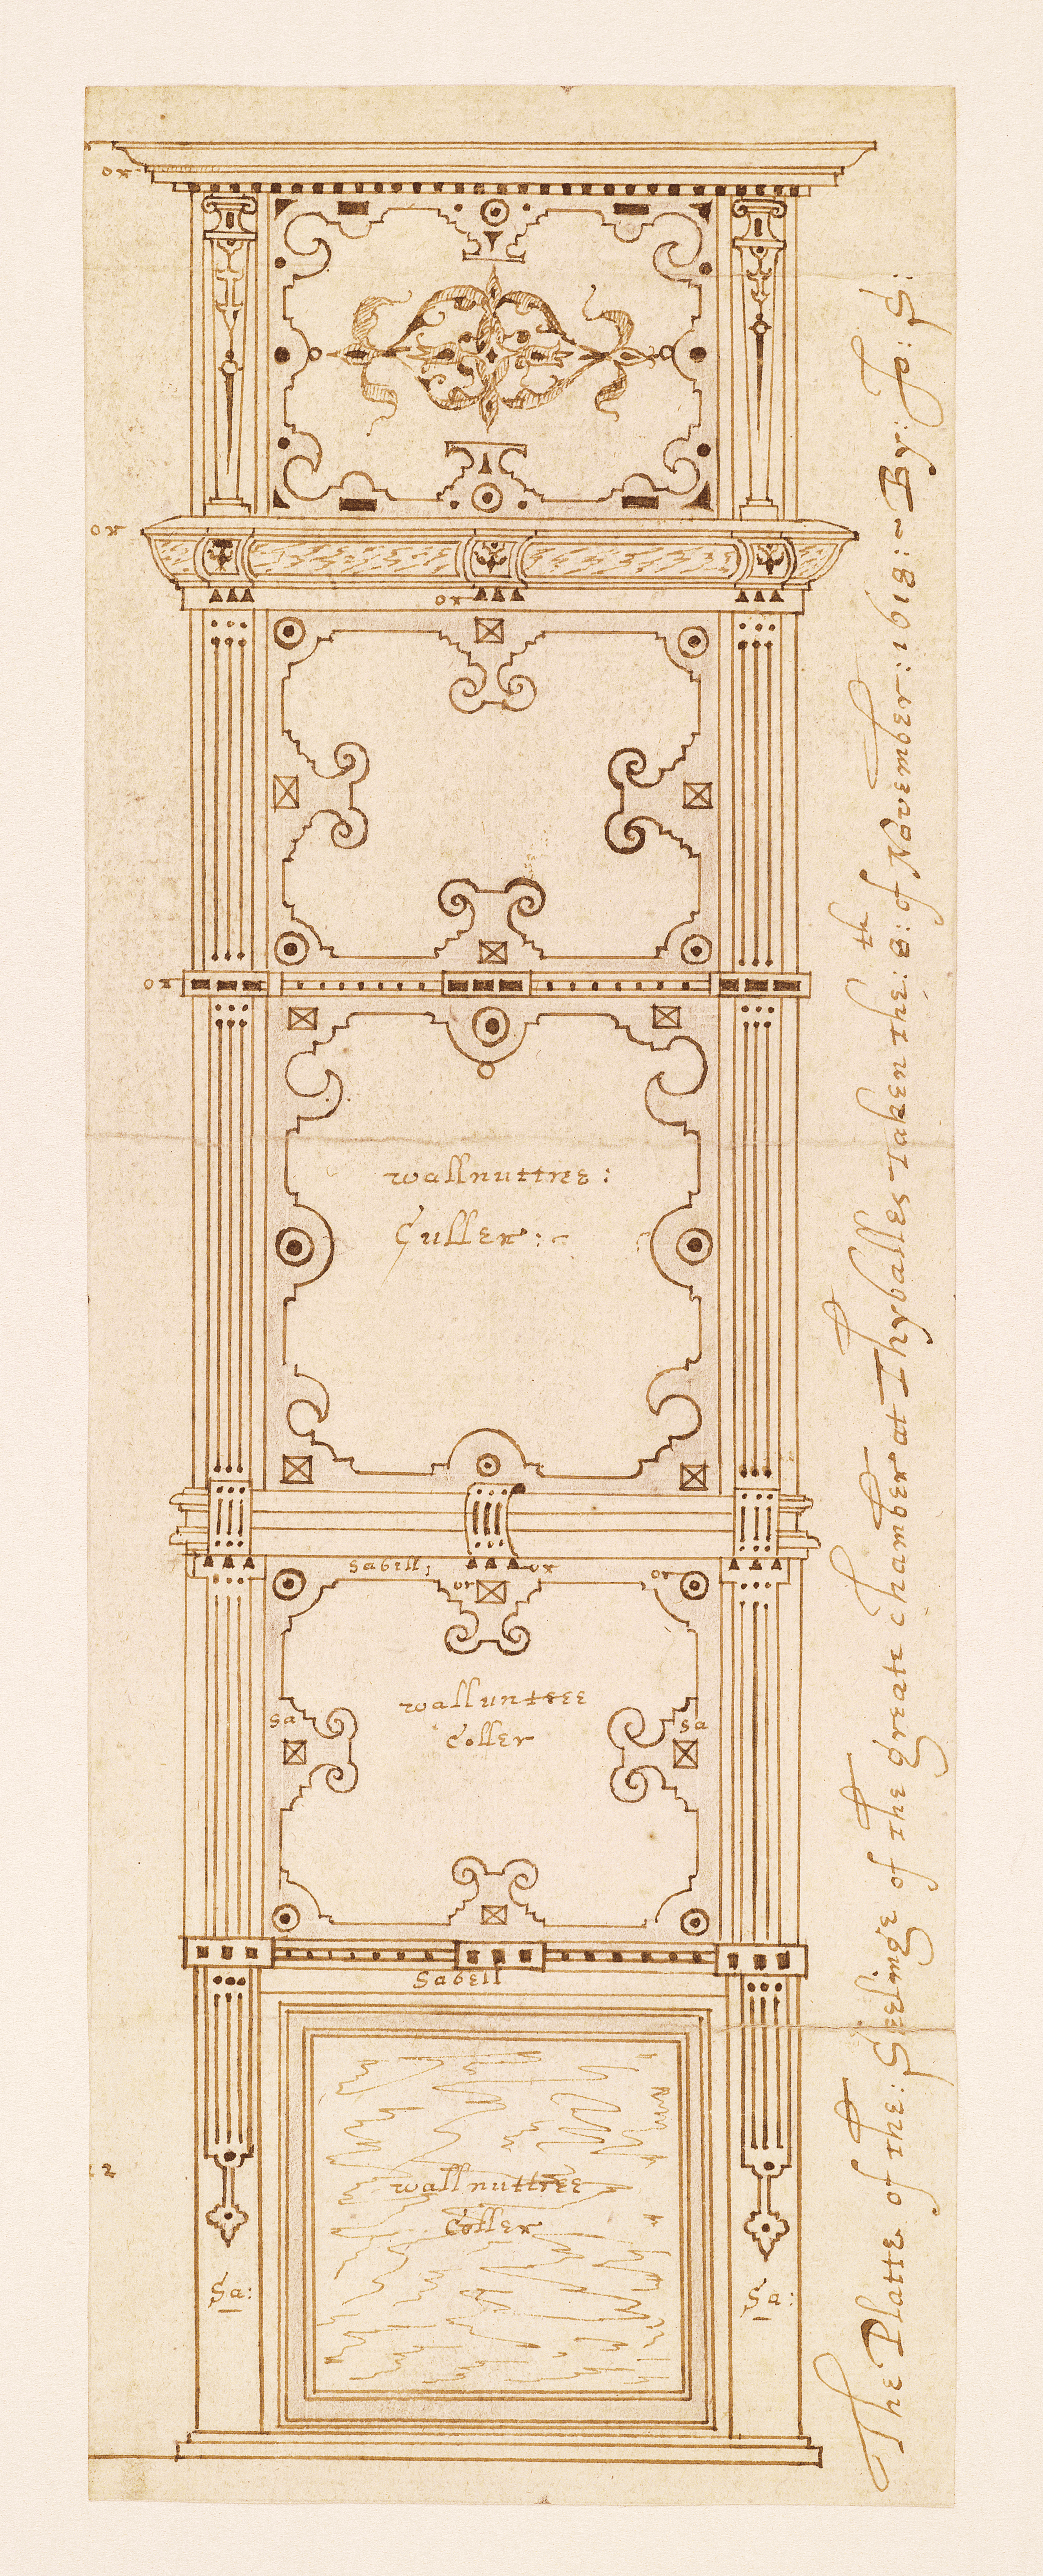 or
or
or
or
wallnuttree:
Culler:~
Sabell:
or
or
or
walluntree
Coller
Sa
Sa
Sabell
wallnuttree
Coller
Sa:
Sa:
The Platte of the: Seelinge of the greate chamber at Thyballes Taken the: 8:th of November: 1618: ~ By: Jo: S: